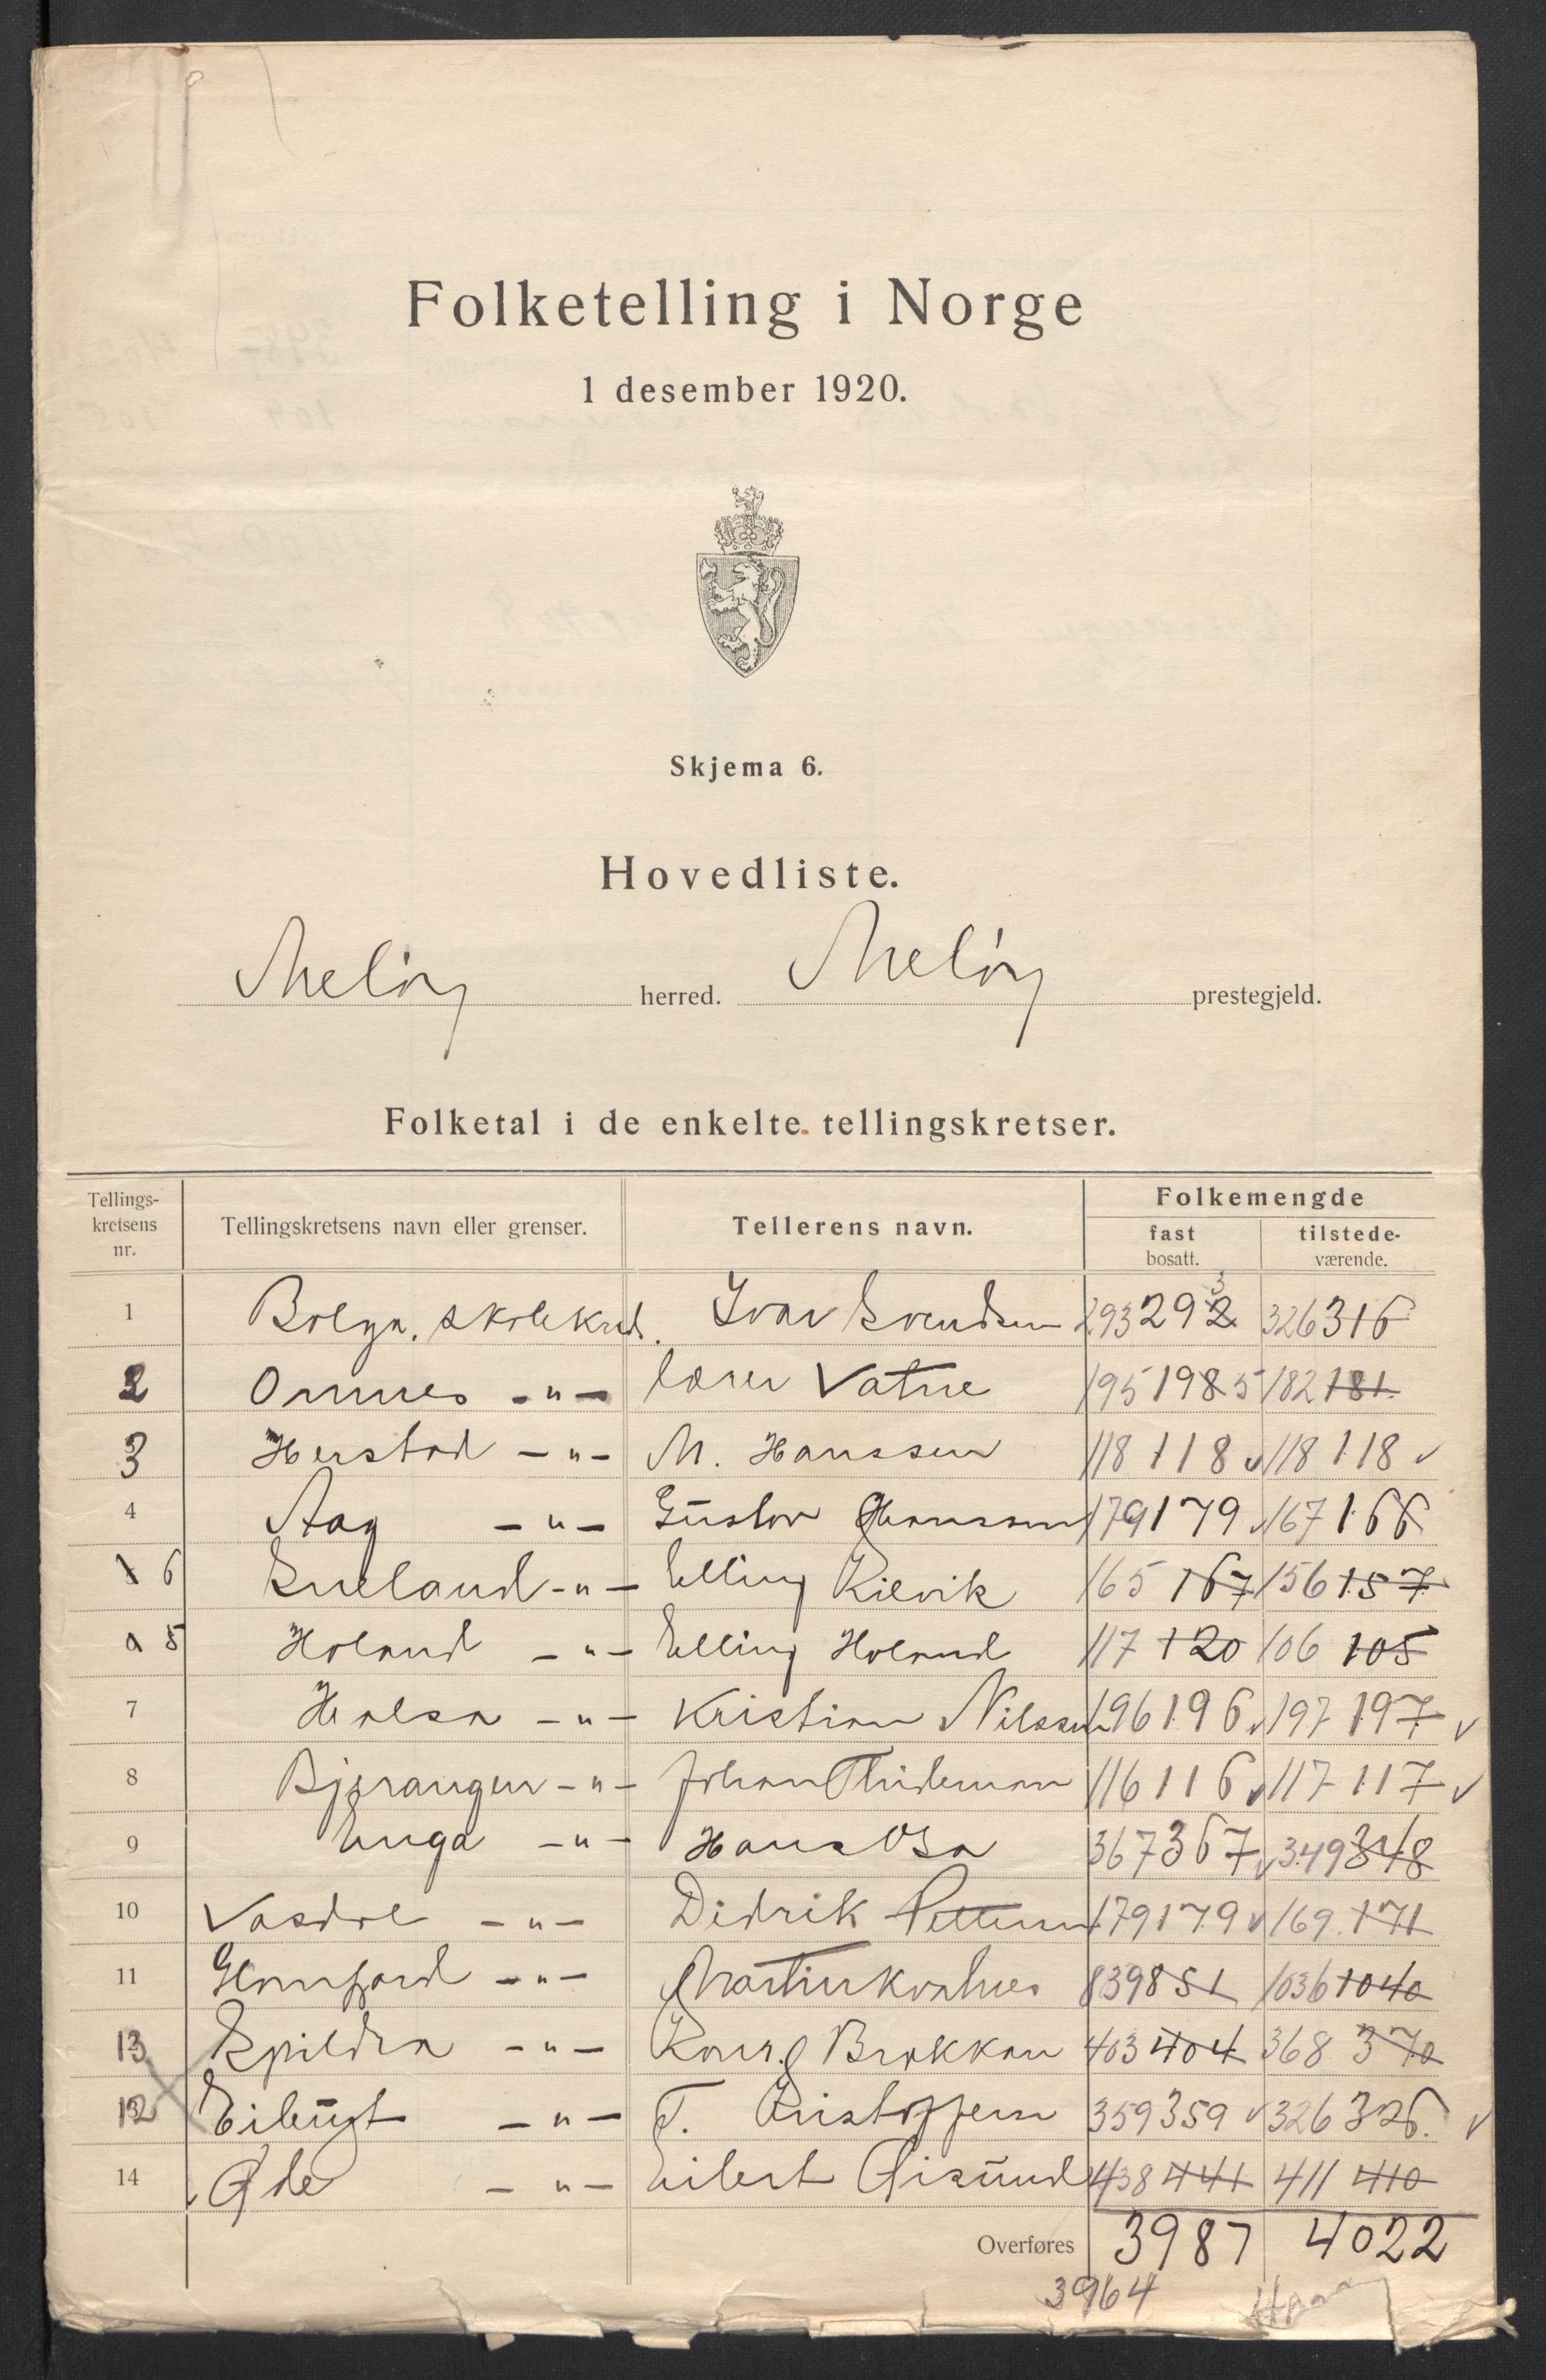 Folketelling i Norge
1 desember 1920.
Skjema 6.
Hovedliste.
Meløy herred. Meløy prestegjeld.
Folketal i de enkelte tellingskretser.
Tellings-kretsens nr. Tellingskretsens navn eller grenser. Tellerens navn. Folkemengde
fast bosatt. tilstede-værende.
1 Bolga. skolekreds. Ivar Svendsen 293 292 3 326 316
2 Ørnnes -"- lærer Vatne 195 198 5 182 181
3 Herstad -"- M. Hanssen 118 118 ✓ 118 118 ✓
4 Aag -"- Gustav Hanssen 179 179 ✓ 167 166
6 Eneland -"- Elling Kilvik 165 167 156 157
5 Holand -"- Elling Holand 117 120 106 105
7 Halsa -"- Kristian Nilssen 196 196 ✓ 197 197 ✓
8 Bjerangen -"- Johan Thideman 116 116 ✓ 117 117 ✓
9 Enga -"- Hans Osa 367 367 ✓ 349 348
10 Vasdal -"- Didrik Pettersen 179 179 ✓ 169 171
11 Glomfjord -"- Martin 839 851 1036 1040
13 Spildra -"- Konr. Brokkan 403 404 368 370
12 -"- T. Kristoffersen 359 359 ✓ 326 326. ✓
14 Øde -"- Eilert Gisund 438 441 411 410
Overføres 3987 4022
3964